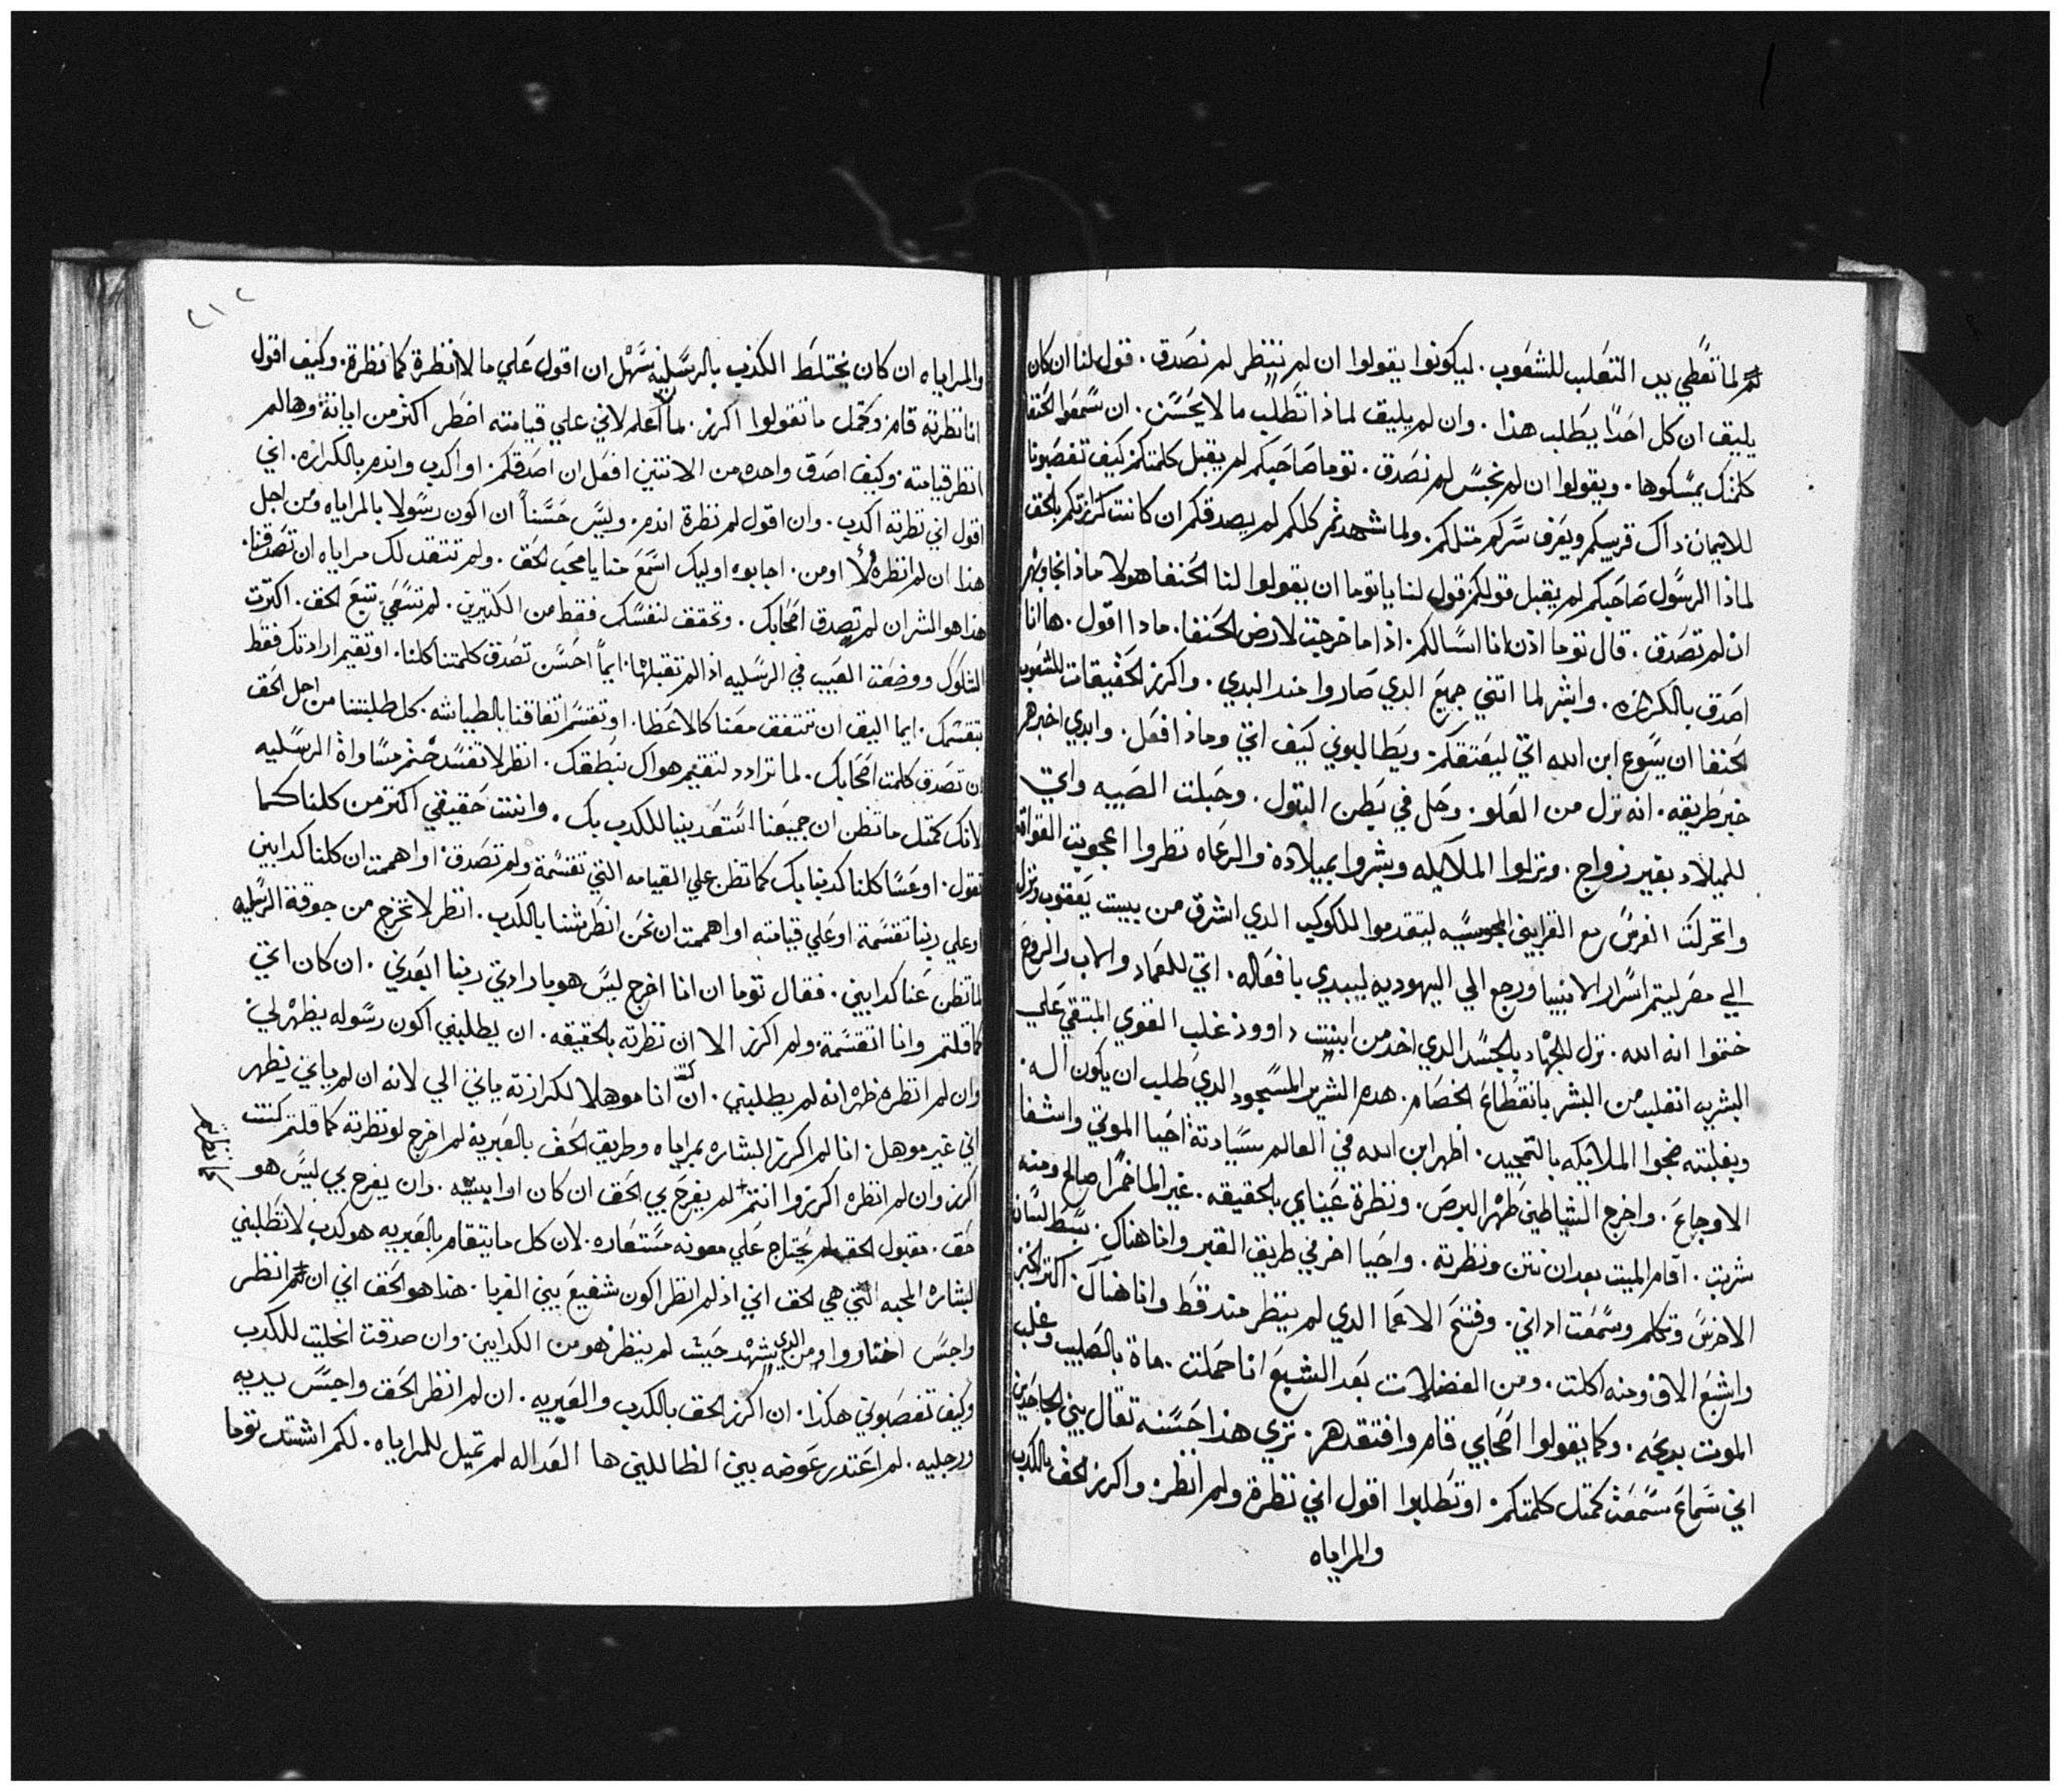 لما تعطي يد التعلب للشعوب. ليكونوا يقولوا ان لم ننظر لم نصدق. قول لنا ان كان
يليق ان كل احدًا يطلب هذا. وان لم يليق لماذا تطلب ما لا يحسن. ان سمعوا الحنفا
كلمتك يمسكوها. ويقولوا ان لم نجس لم نصدق. توما صاحبكم لم يقبل كلمتكم كيف تغصبونا
للايمان. داك قريبكم ويعرف سركم متلكم. ولما شهدتم كلكم لم يصدقكم ان كانت كرازتكم بالحق
لماذا الرسول صاحبكم لم يقبل قولكم. قول لنا يا توما ان يقولوا لنا الحنفا هولا ماذا نجاوبهم
ان لم تصدق. قال توما اذن انا اسالكم. اذا ما خرجت لارض الحنفا. ماذا اقول. ها انا
اصدق بالكرازه. وابشر لما اتني جميع الدي صاروا مند البدي. واكرز الحقيقات للشعوب
الحنفا ان يسوع ابن الله اتى ليعتقكم. ويطالبوني كيف اتى وماذا افعل. وابدي اخبرهم
خبر طريقه. انه نزل من العلو. وحل في بطن البتول. وحبلت الصبيه واتى
للميلاد بغير زواج. ونزلوا الملايكه وبشروا بميلاده والرعاه نظروا اعجوبت القوات
واتحركت الفرس مع القرابين المجوسيه ليتقدموا للكوكب الدي اشرق من بيت يعقوب ونزل
الي مصر ليتم اسرار الانبيا ورجع الي اليهوديه ليبدي بافعاله. اتى للعماد والاب والروح
ختموا انه الله. نزل للجهاد بالجسد الدي اخد من ابنت داوود غلب القوي المتقي علي
البشريه انغلب من البشر بانقطاع الخصام. هدم الشرير المسجود الدي طلب ان يكون اله.
وبغلبته ضجوا الملايكه بالتمجيد. اظهر ابن الله في العالم سيادته. احيا الموتي واشفا
الاوجاع. واخرج الشياطين طهر البرص. ونظرة عيناي بالحقيقه. غير الما خمرًا صالح ومنه
شربت. اقام الميت بعد ان نتن ونظرته. واحيا اخر في طريق القبر وانا هناك. بسط لسان
الاخرس وتكلم وسمعت اداني. وفتح الاعما الدي لم ينظر مند قط وانا هناك. اكتر الخبز
واشبع الاف ومنه اكلت. ومن الفضلات بعد الشبع انا حملت. ماة بالصليب وغلب
الموت بديحه. وكما يقولوا اصحابي قام وافتقدهم. تري هذا حسنه تقال بين الجاحدين
اني سماع سمعت كمتل كلمتكم. او تطلبوا اقول اني نظرة ولم انظر. واكرز الحق بالكدب
والمراياه
٢١٢
والمراياه ان كان يختلط الكذب بالرسليه سهل ان اقول علي ما لا انظرة كما نظرة. وكيف اقول
انا نظرته قام وكمتل ما تقولوا اكرز. لما اعلم لاني علي قيامته اضطر اكثر من اياته وها لم
انظر قيامته. وكيف اصدق واحده من الاتنتين افعل ان اصدقكم. او اكدب واندم بالكرازه. اني
اقول اني نظرته اكدب. وان اقول لم نظرة اندم. وليس حسناً ان اكون رسولا بالمراياه ومن اجل
هذا ان لم انظره لا اومن. اجابوه اوليك اسمع منا يا محب الحق. ولم تنتقد لك مراياه ان تصدقنا.
هذا هو الشر ان لم تصدق اصحابك. وتحقق لنفسك فقط من الكتيرين. لم تسقي تتبع الحق. اكترت
الشكوك ووضعت العيب في الرسليه اذ لم تقبلها. ايماً احسن تصدق كلمتنا كلنا. او تقيم ارادتك فقط
بتقسمك. ايما اليق ان تتفق معنا كالاعظا. او تقسم اتفاقنا بالطياشه. كل طلبتنا من اجل الحق
ان تصدق كلمت اصحابك. لما تزادد لتقيم هواك بنطقك. انظر لا تفسد ختم مساواة الرسليه
لانك كمتل ما تظن ان جميعنا استعدينا للكدب بك. وانت حقيقي اكتر من كلنا كما
تقول. او عسا كلنا كدبنا بك كما تظن علي القيامه التي تقسمة ولم تصدق. او اهممت ان كلنا كدابين
او علي ربنا تقسمة او علي قيامته او اهممت ان نحن انطرتنا بالكدب. انظر لا تخرج من جوقة الرسليه
لما تظن عنا كدابين. فقال توما ان انا اخرج ليس هو بارادتي ربنا ابعدني. ان كان اتى
كما قلتم وانا اتقسمة. ولم اكرز الا ان نظرته بالحقيقه. ان يطلبني اكون رسوله يظهر لي
وان لم انظره ظهر انه لم يطلبني. ان كنت انا موهلا لكرازته ياتي الي لانه ان لم ياتي يظهر
اني غير موهل. انا لم اكرز البشاره بمراياه وطريق الحق بالعيريه لم اخرج لو نظرته كما قلتم كنت
اكرز وان لم انظره اكرزوا انتم لم يفرح بي الحق ان كان اوايبيه. وان يفرح بي ليس هو
حق. مقبول الحق لم يحتاج علي معونه مستعاره. لان كل ما يتقام بالعيريه هو كدب لا تطلبني
البشاره المحبه التي هي الحق اني اذ لم انظر اكون شفيع بين القريا. هذا هو الحق اني ان لم انظر
واجس اختاروا ومن الدي يشهد حيث لم ينظر هو من الكدابين. وان صدقت انحليت للكدب
وكيف تغصبوني هكذا. ان اكرز الحق بالكدب والعيريه. ان لم انظر الحق واجسس يديه
ورجليه. لم اعتدر عوضه بين الظالمين ها العداله لم تميل للمراياه. لكم اشتد توما